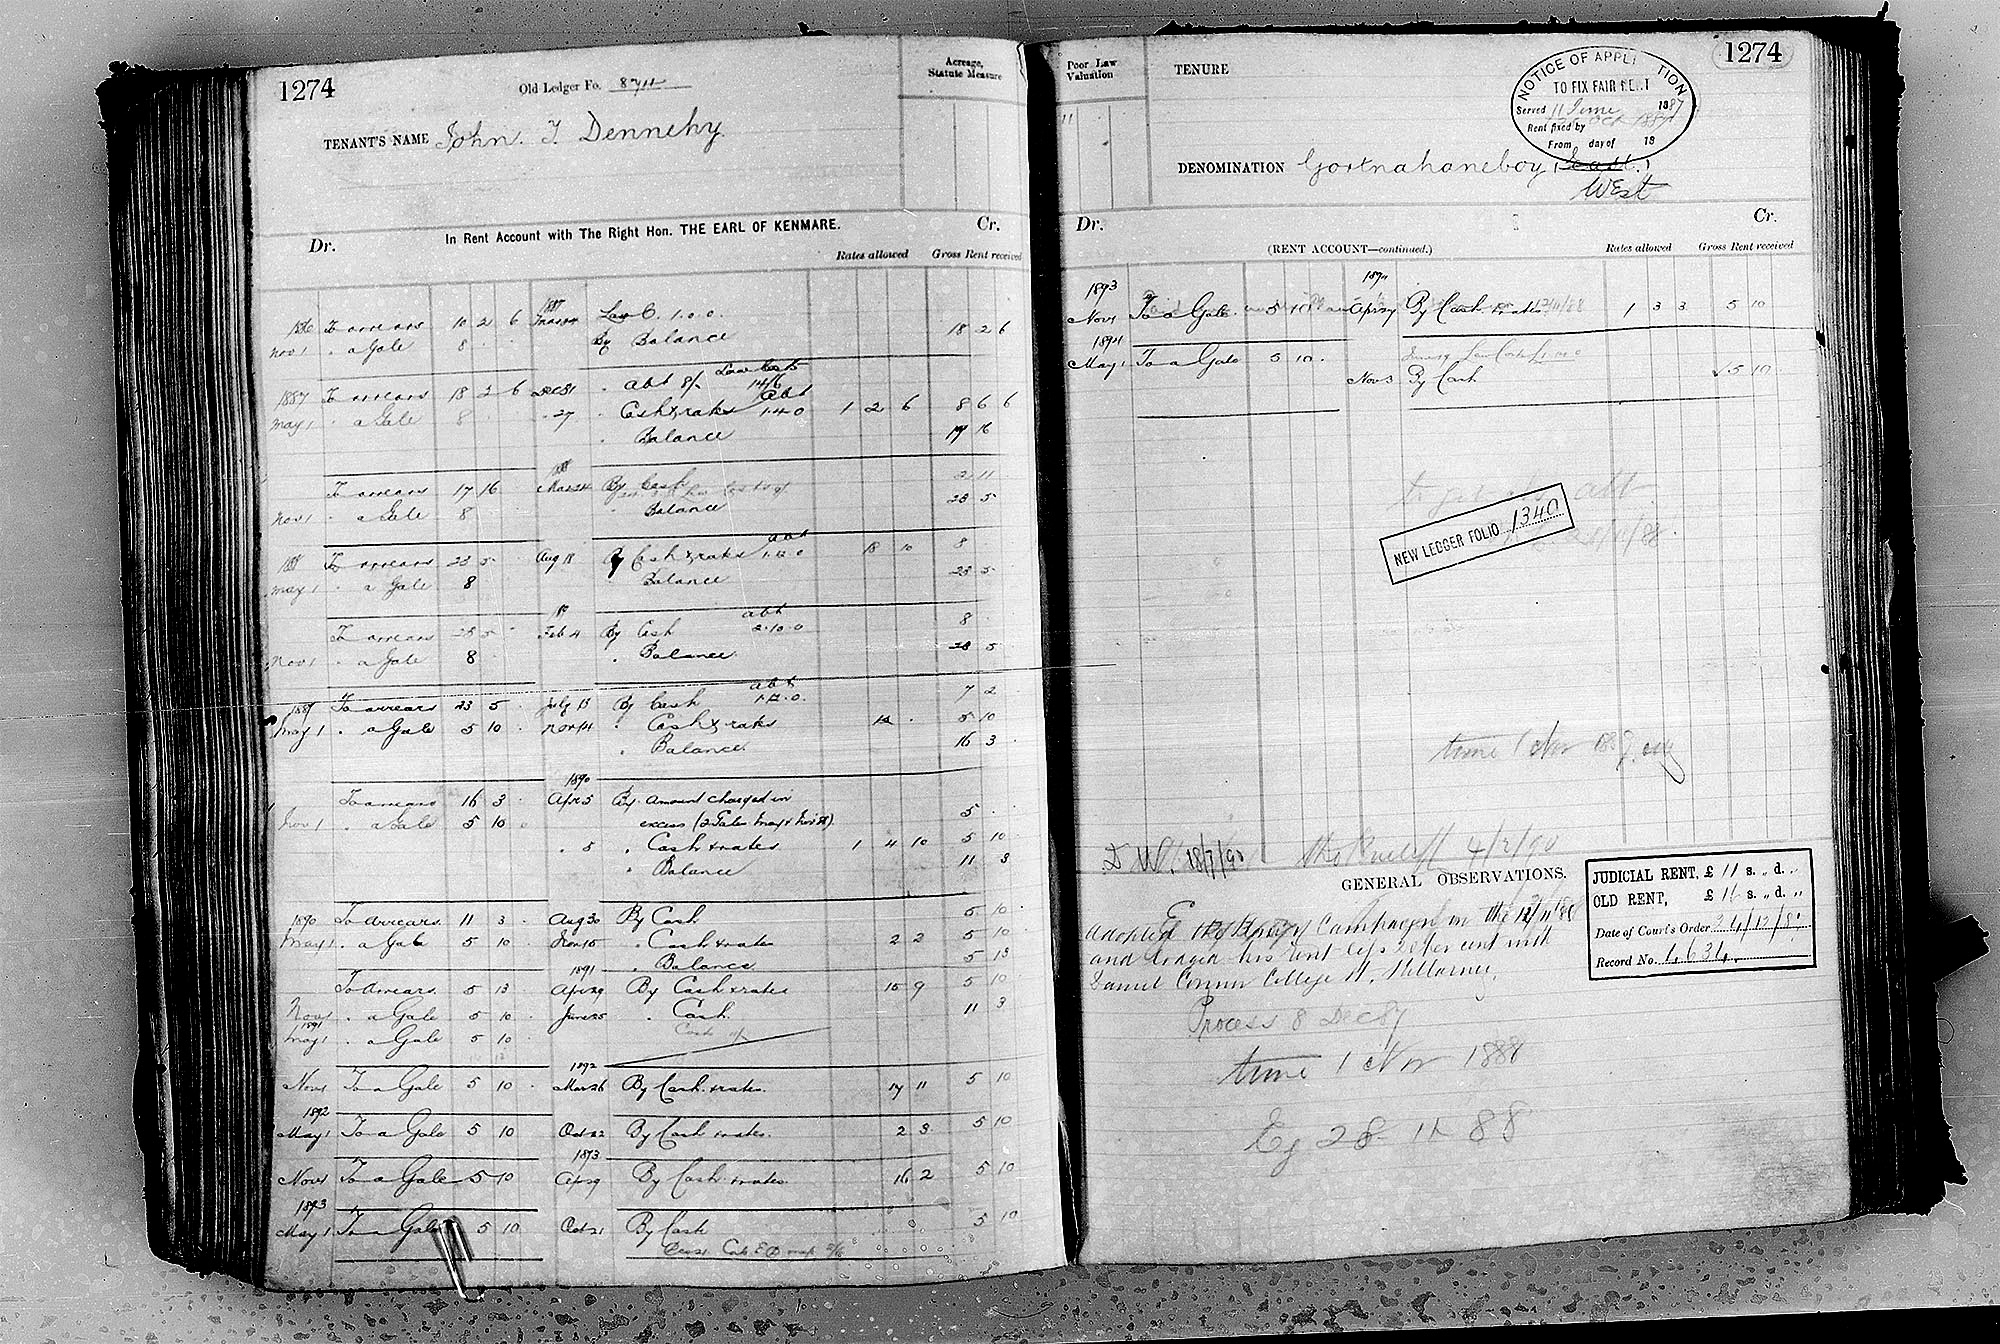 1274
Old Ledger Fo.
Acreage,
Statute Measure
TENANT'S NAME John. T. Dennehy
In Rent Account with The Right Hon. THE EARL OF KENMARE.
Dr.
Cr.
Rates allowed
Gross Rent received
1887
To arrears 10 2 6 Law C. 1.0.0.
Nov 1 . a Gale 8 By Balance 18 2 6
1887 To arrears 18 2 6 Dec 31 . abt 8/ Law Costs 14/6
May 1 . a Gale 8 . 27 . Cash & rates abt 1.4.0 1 2 6 8 6 6
. Balance 17 16
1888
To arrears 17 16 Mar 24 By Cash 2 11
Nov 1 . a Gale 8 . Balance 23 5
1888 To arrears 23 5 Aug 18 By Cash & rates abt 1.12.0 18 10 8
May 1 . a Gale 8 Balance 23 5
To arrears 23 5 Feb 4 By Cash abt 2.10.0 8
Nov 1 . a Gale 8 . Balance 23 5
1889 To arrears 23 5 July 13 By Cash abt 1.12.0 7 2
May 1 . a Gale 5 10 Nov 14 . Cash & rates 5 10
. Balance 16 3
1890
To arrears 16 3 Apr 5 By amount charged in
Nov 1 . a Gale 5 10 excess (2 Gales May & Nov 88). 5
. 5 . Cash & rates 1 4 10 5 10
. Balance 11 3
1890 To Arrears 11 3 Aug 30 By Cash 5 10
May 1 . a Gale 5 10 Nov 15 . Cash & rates 2 2 5 10
. Balance 5 13
1891
To Arrears 5 13 Apr 29 By Cash & rates 15 9 5 10
Nov 1 . a Gale 5 10 June 25 . Cash. 11 3
1891
May 1 . a Gale 5 10
1892
Nov 1 To a Gale 5 10 Mar 26 By Cash & rates. 17 11 5 10
1892
May 1 To a Gale 5 10 Oct 22 By Cash & rates. 2 3 5 10
1893
Nov 1 To a Gale 5 10 Apr 29 By Cash & rates 16 2 5 10
1893
May 1 To a Gale 5 10 Oct 21 By Cash 5 10
1274
Poor Law
Valuation
TENURE
NOTICE OF APPLICATION
TO FIX FAIR RENT
Served 11 June 1887
Rent fixed by
From day of 18
DENOMINATION Gortnahaneboy (East)
West
Dr.
Cr.
(RENT ACCOUNT—continued.)
Rates allowed
Gross Rent received
1893 1894
Nov 1 To a Gale 5 10 Apr 27 By Cash & rates 1 3 3 5 10
1894
May 1 To a Gale 5 10
Nov 3 By Cash 5 10
NEW LEDGER FOLIO 1340
time 1 Nov
18/7/90
4/2/90
GENERAL OBSERVATIONS.
JUDICIAL RENT, £ 11 s. „ d. „
OLD RENT, £ 16 s. „ d. „
Date of Court's Order
Record No. 4634
Adopted the Campaign on the
and lodged his rent less 20 per cent with
Daniel Connor College St. Killarney.
Process 8 Dec 87
time 1 Nov 1888
Ej 28 11 88